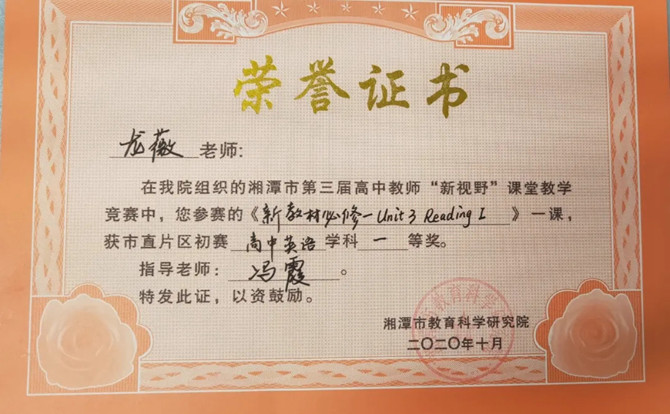 荣誉证书
龙薇 老师:
在我院组织的湘潭市第三届高中教师“新视野”课堂教学
竞赛中，您参赛的《新教材必修一 Unit 3 Reading I》一课，
获市直片区初赛 高中英语 学科 一 等奖。
指导老师: 冯霞 。
特发此证，以资鼓励。
湘潭市教育科学研究院
二〇二〇年十月